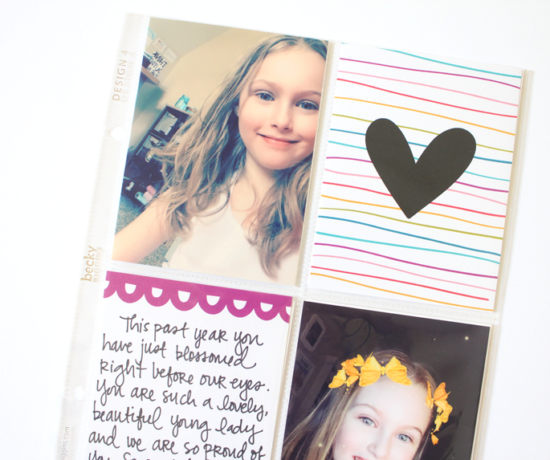 DESIGN 4
becky
This past year you
have just blossomed
right before our eyes.
You are such a lovely,
beautiful young lady
and we are so proud of